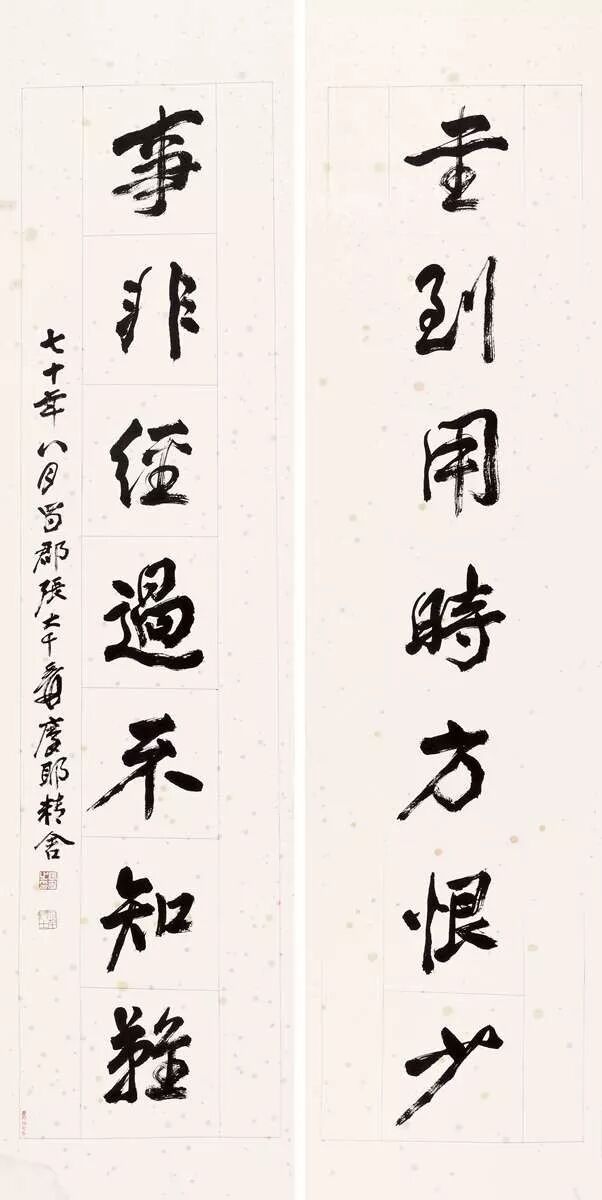 書到用時方恨少
事非經過不知難
七十年八月蜀郡張大千爰摩耶精舍